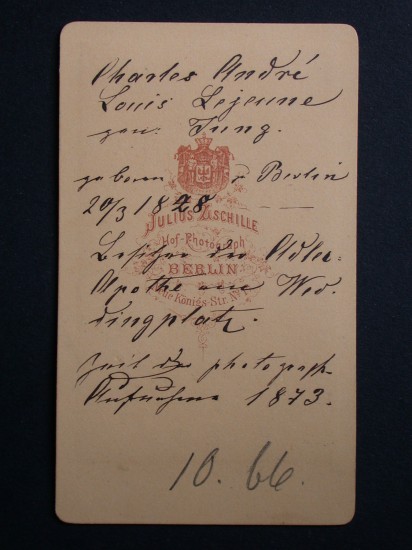 Charles André
Louis Lejeune
gen. Jung.
geboren Berlin
20/3 1828
JULIUS ZSCHILLE
Hof-Photograph
BERLIN
Königs-Str. No
Besitzer der Adler-
Apothe am Wed
dingplatz.
Zeit der photograph.
Aufnahme 1873.
10. 66.